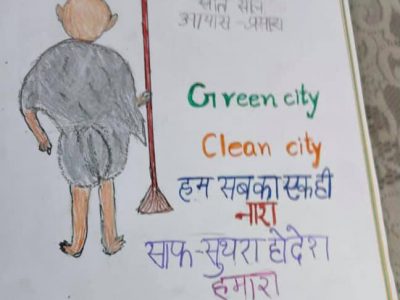 आयास-प्रयास
Green city
Clean city
हम सबका एक ही
नारा
साफ-सुथरा हो देश
हमारा